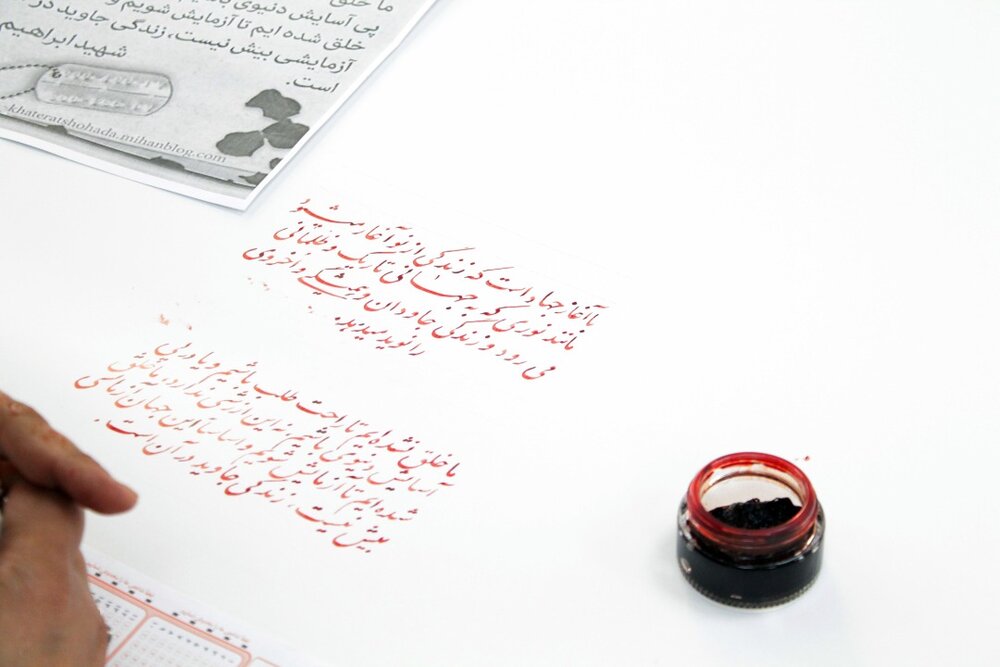 ما خلق
پی آسایش دنیوی باشیم
خلق شده ایم تا آزمایش شویم و
آزمایشی بیش نیست، زندگی جاوید در
است. شهید ابراهیم
khateratshohada.mihanblog.com
با آغاز جهاد است که زندگی از نو آغاز میشود
مانند نوری که به جهانی تاریک و ظلمانی
می رود و زندگی جاودان و همیشگی و اخروی
را نوید میدهد.
ما خلق نشده ایم تا راحت طلب باشیم و یا در پی
آسایش دنیوی باشیم نه این ارزشی ندارد، ما خلق
شده ایم تا آزمایش شویم و اساسا این جهان آزمایشی
بیش نیست، زندگی جاوید در آن است.